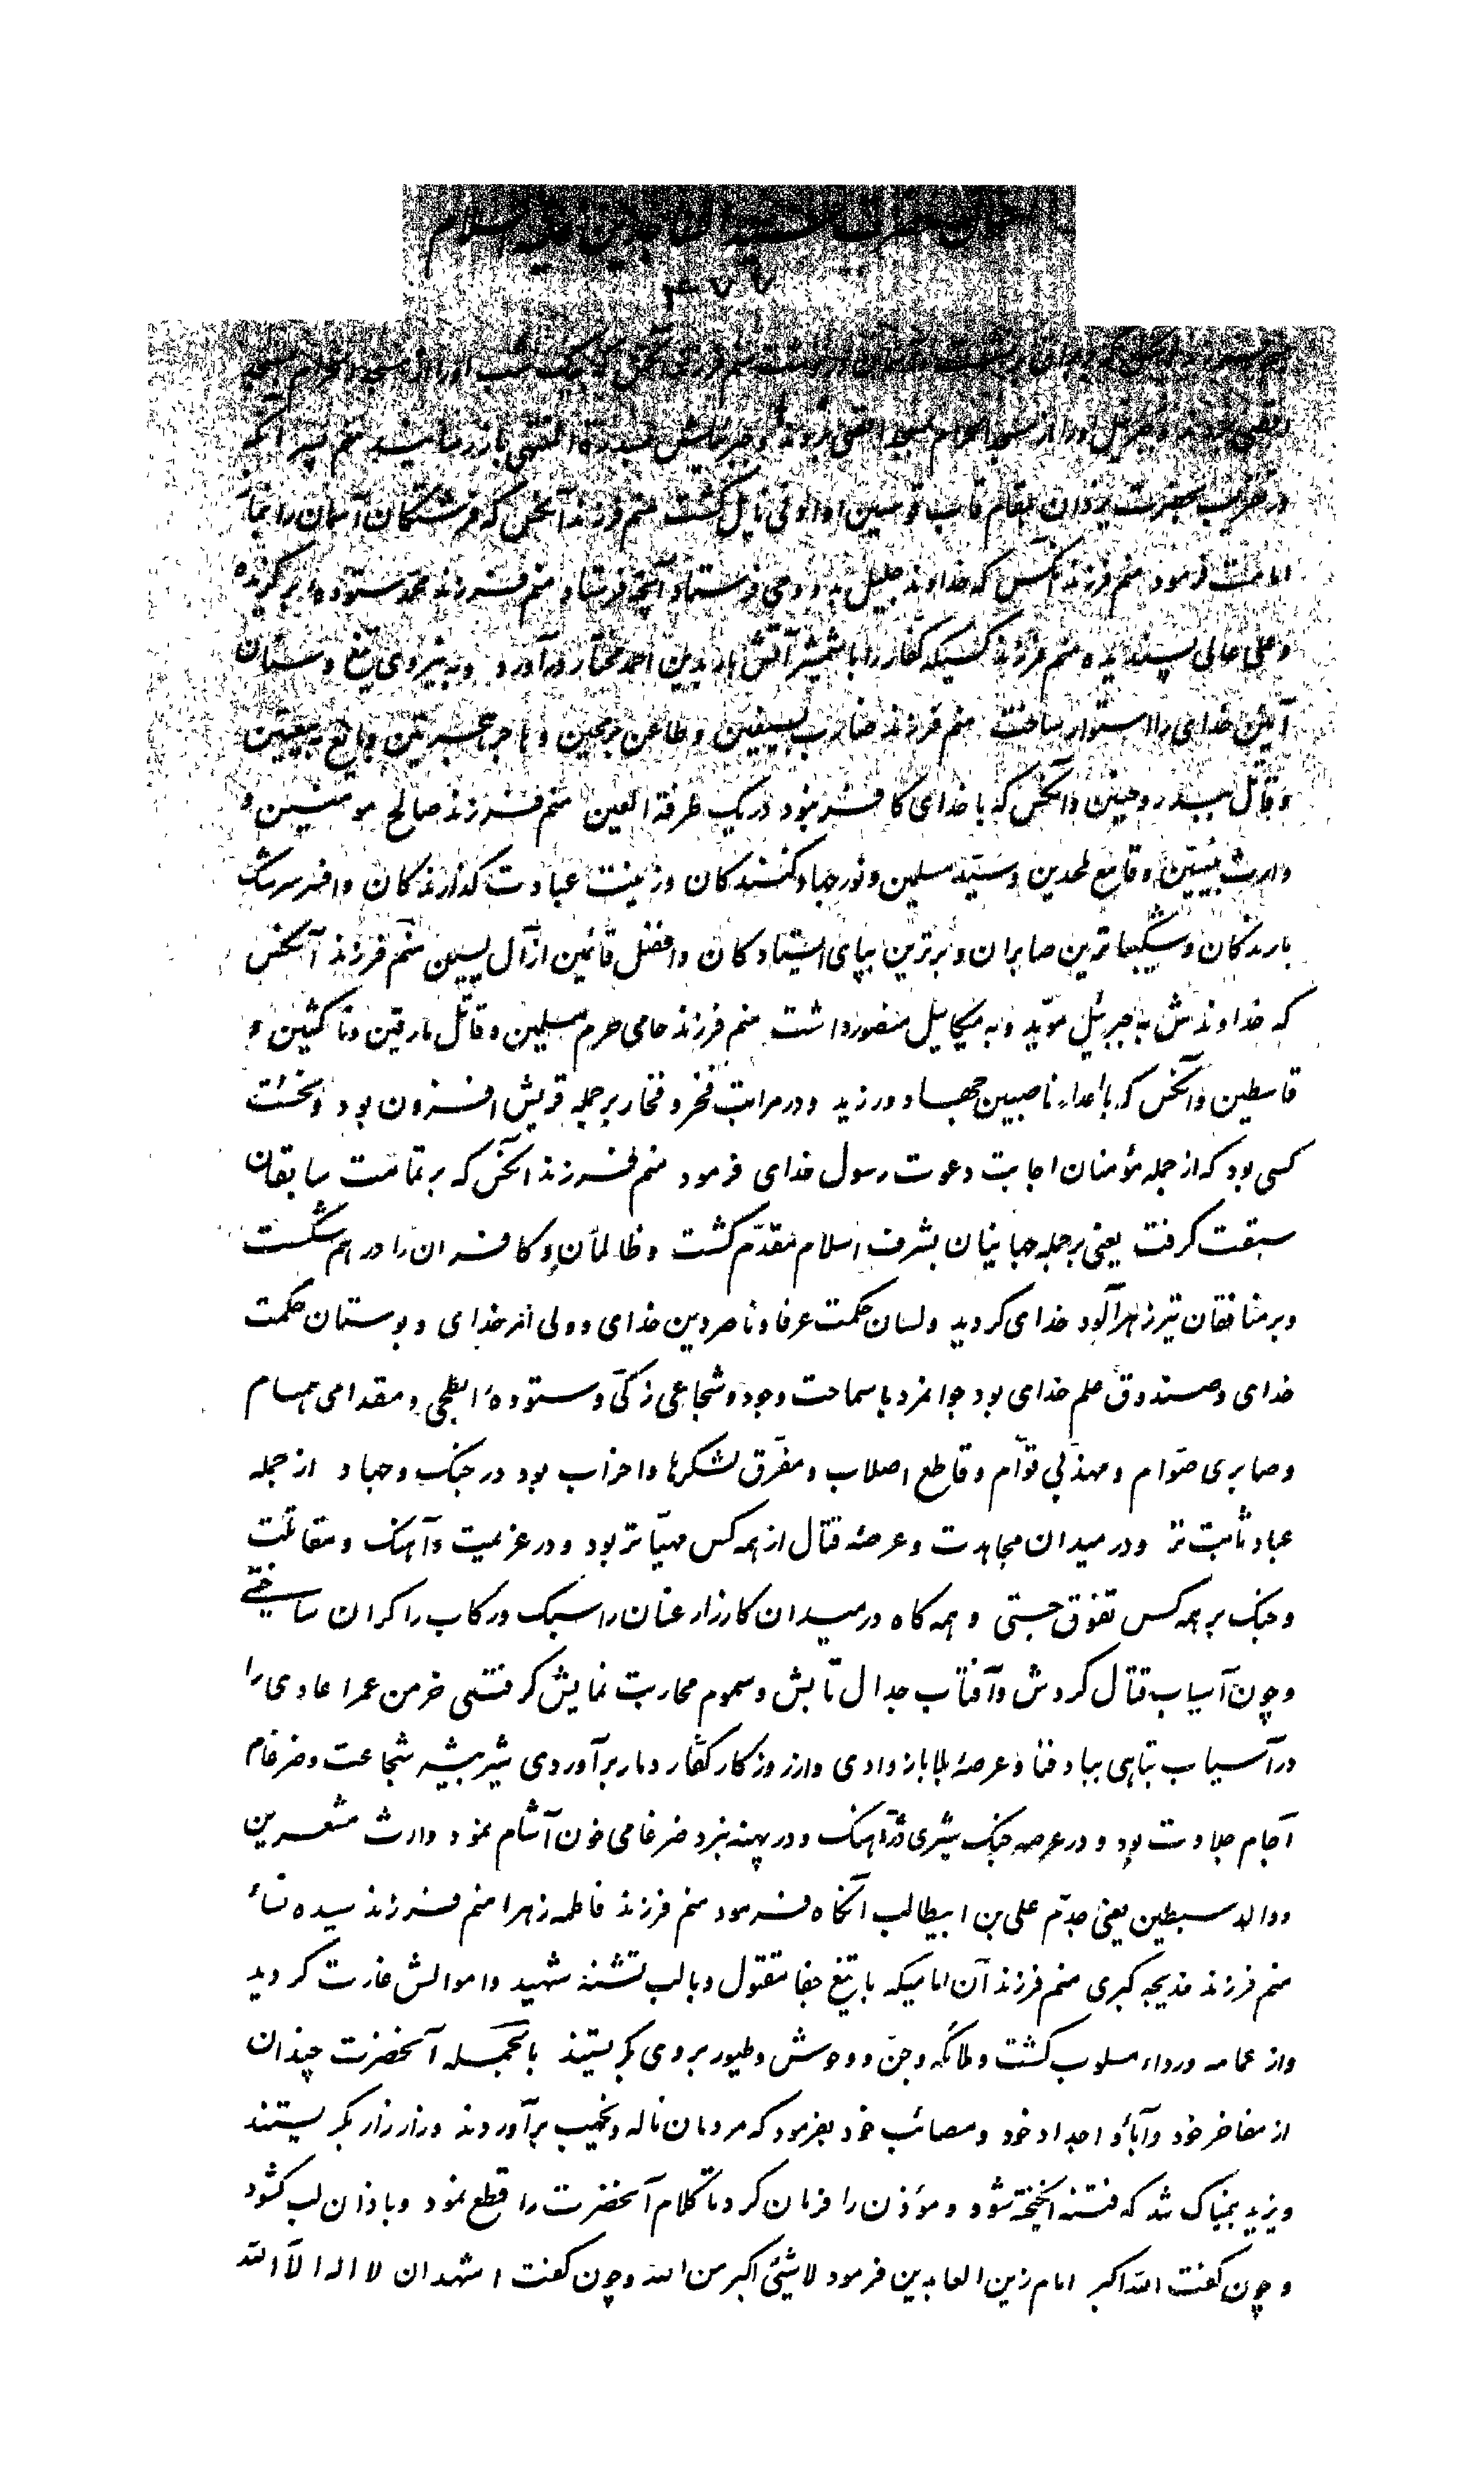 احوال حضرت سید الساجدین علیه السلام
۴۷۷
منم فرزند آنکس که یک شب او را از مسجد الحرام بمسجد
اقصی او را از مسجد الحرام بمسجد اقصی بردند و جبرئیلش بسدرة المنتهی باز رسانید منم پسر آنکه
در قرب حضرت یزدان بمقام قاب قوسین او ادنی نایل کشت منم فرزند آنکس که فرشتکان آسمان را بنماز
امامت فرمود منم فرزند آنکس که خداوند جلیل بدو وحی فرستاد آنچه فرستاد منم فرزند محمد ستوده برکزیده
و علی عالی پسندیده منم فرزند کسیکه کفار را با شمشیر آتش بار بدین احمد مختار درآورد و به نیروی تیغ و سنان
آیین خدای را استوار ساخت منم فرزند ضارب بسیفین و طاعن برمحین و هاجر هجرتین و بایع بیعتین
و قاتل ببدر و حنین و آنکس که با خدای کافر نبود در یک طرفة العین منم فرزند صالح مومنین و
وارث نبیین و قامع ملحدین و سید مسلمین و نور جهاد کنندکان و زینت عبادت کذارندکان و افسر سرشک
بارندکان و شکیباترین صابران و برترین بپای ایستادکان و افضل قائمین از آل یسین منم فرزند آنکس
که خداوندش به جبرئیل مؤید و به میکاییل منصور داشت منم فرزند حامی حرم مسلمین و قاتل مارقین و ناکثین و
قاسطین و آنکس که با اعداء ناصبین جهاد ورزید و در مراتب فخر و فخار بر جمله قریش افزون بود و نخست
کسی بود که از جمله مؤمنان اجابت دعوت رسول خدای فرمود منم فرزند آنکس که بر تمامت سابقان
سبقت کرفت یعنی بر جمله جهانیان بشرف اسلام مقدم کشت و ظالمان و کافران را در هم شکست
و بر منافقان تیر زهرآلود خدای کردید و لسان حکمت عرفا و ناصر دین خدای و ولی امر خدای و بوستان حکمت
خدای و صندوق علم خدای بود جوانمرد با سماحت وجود و شجاعی زکی و ستودهٔ ابطحی و مقدامی همام
و صابری صوام و مهذبی قوام و قاطع اصلاب و مفرق لشکرها و احزاب بود در جنک و جهاد از جمله
عباد ثابت تر و در میدان مجاهدت و عرصهٔ قتال از همه کس مهیاتر بود و در عزیمت و آهنک و مقاتلت
و جنک بر همه کس تفوق جستی و همه کاه در میدان کارزار عنان را سبک و رکاب را کران ساختی
و چون آسیاب قتال کردش و آفتاب جدال تابش و سموم محاربت نمایش کرفتی خرمن عمر اعادی را
در آسیاب تباهی بباد فنا و عرصهٔ بلا باز دادی و از روزکار کفار دمار برآوردی شیر بیشه شجاعت و ضرغام
آجام جلادت بود و در عرصه جنک شیری دژآهنک و در پهنه نبرد ضرغامی خون آشام نمود وارث مشعرین
و والد سبطین یعنی جدم علی بن ابیطالب آنکاه فرمود منم فرزند فاطمه زهرا منم فرزند سیده نساء
منم فرزند خدیجه کبری منم فرزند آن امامیکه با تیغ جفا مقتول و با لب تشنه شهید و اموالش غارت کردید
و از عمامه و رداء مسلوب کشت و ملائکه و جن و وحوش و طیور بروی بکریستند بالجمله آنحضرت چندان
از مفاخر خود و آباء و اجداد خود و مصائب خود بفرمود که مردمان ناله و نحیب برآوردند و زار زار بکریستند
و یزید بیمناک شد که فتنه انکیخته شود و مؤذن را فرمان کرد تا کلام آنحضرت را قطع نمود و باذان لب کشود
و چون کفت الله اکبر امام زین العابدین فرمود لا شیئی اکبر من الله و چون کفت اشهد ان لا اله الا الله